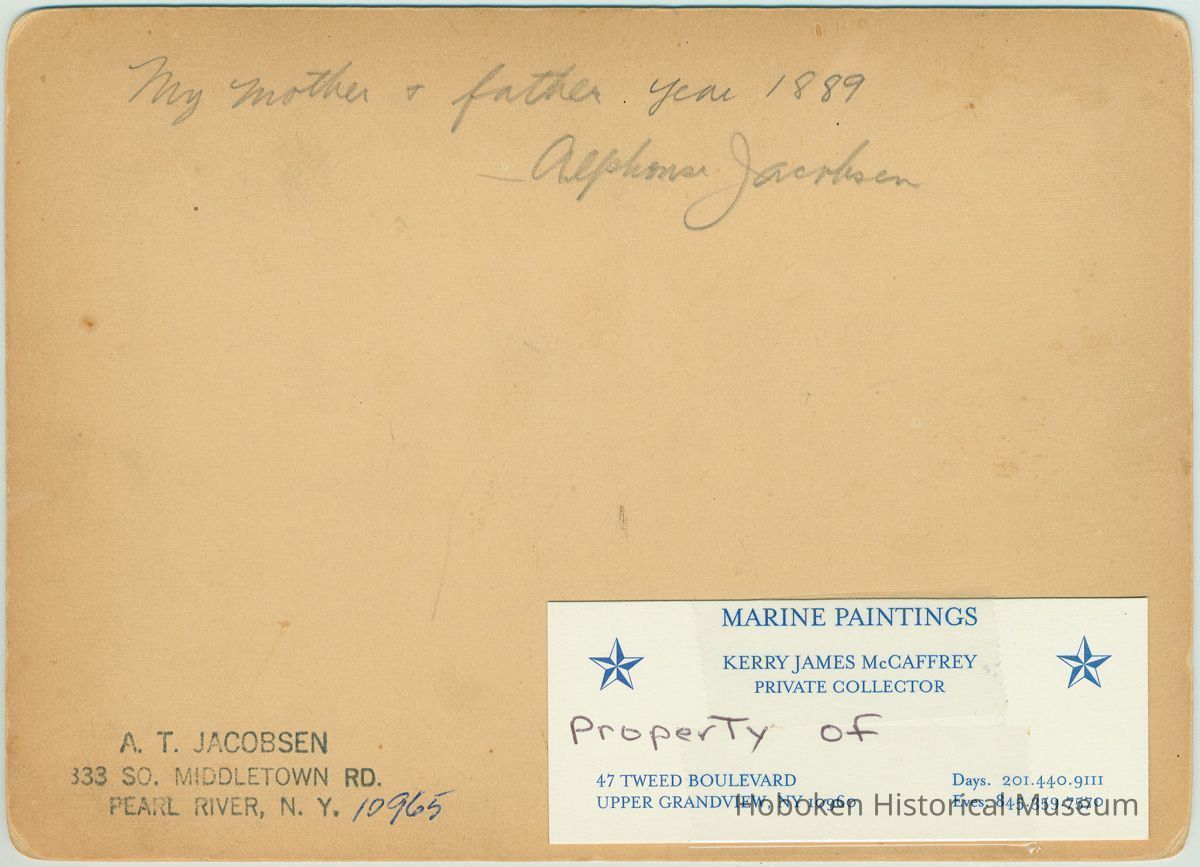 My mother + father. year 1889
— Alphonse Jacobsen
A. T. JACOBSEN
333 SO. MIDDLETOWN RD.
PEARL RIVER, N. Y. 10965
MARINE PAINTINGS
KERRY JAMES McCAFFREY
PRIVATE COLLECTOR
Property of
47 TWEED BOULEVARD
UPPER GRANDVIEW, NY 10960
Days. 201.440.9111
Eves. 845.359.7570
Hoboken Historical Museum